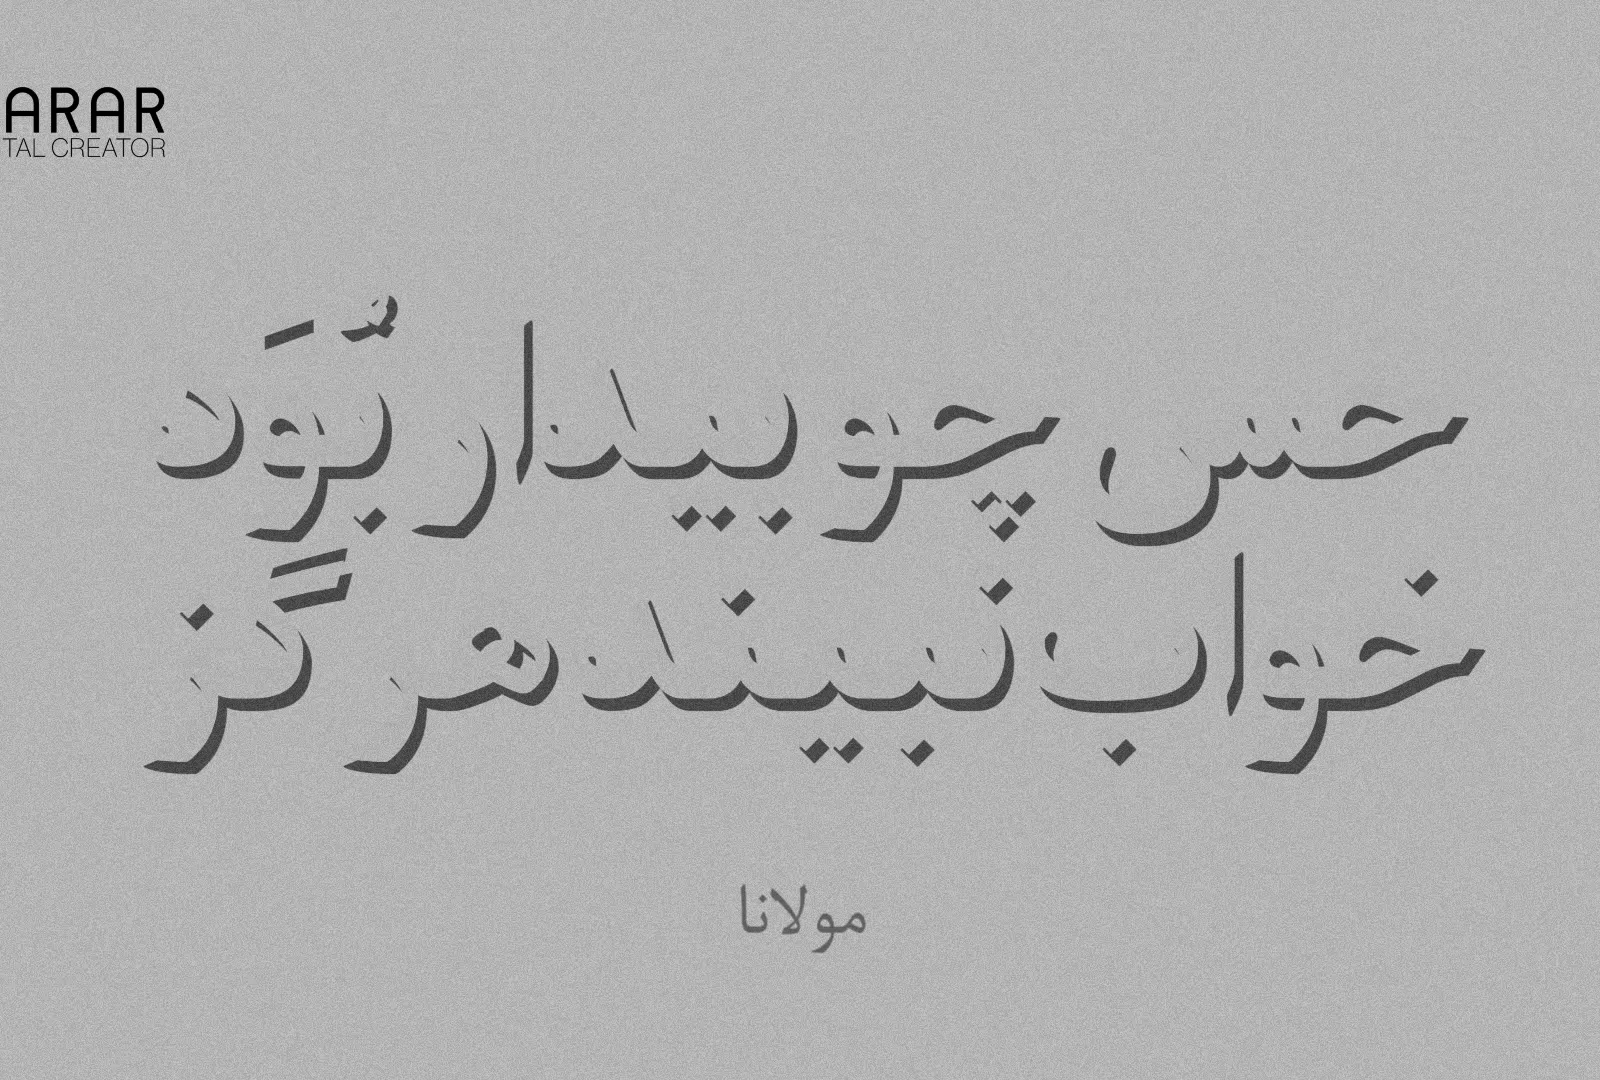 ARAR
TAL CREATOR
حس چو بیدار بُوَد
خواب نبیند هرگز
مولانا